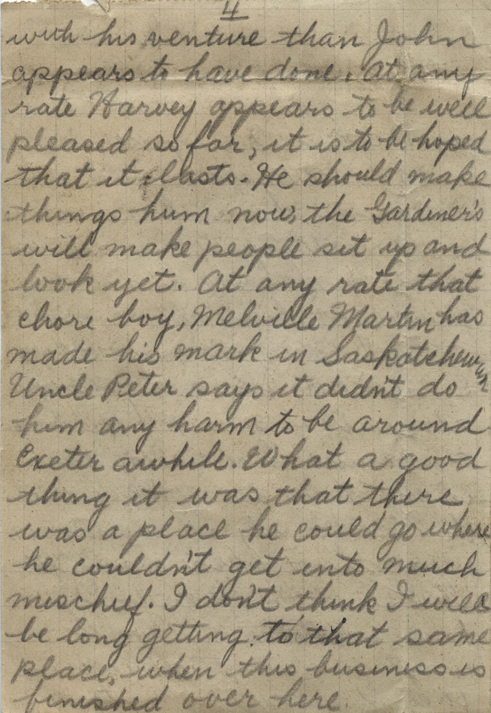 4
with his venture than John
appears to have done. At any
rate Harvey appears to be well
pleased so far, it is to be hoped
that it lasts. He should make
things hum now, the Gardiner's
will make people sit up and
look yet. At any rate that
chore boy, Melville Martin has
made his mark in Saskatchewan
Uncle Peter says it didn't do
him any harm to be around
Exeter awhile. What a good
thing it was that there
was a place he could go where
he couldn't get into much
mischief. I don't think I will
be long getting to that same
place, when this business is
finished over here.